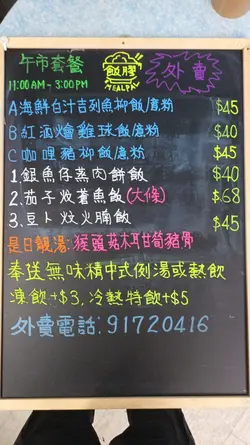 午市套餐
11:00AM - 3:00PM
飯膠
MEALPAL
外賣
A海鮮白汁吉列魚柳飯/意粉 $45
B紅酒燴雞球飯/意粉 $40
C咖喱豬柳飯/意粉 $45
1.銀魚仔蒸肉餅飯 $40
2.茄子炆蒼魚飯(大條) $68
3.豆卜炆火腩飯 $45
是日靚湯:猴頭菇木耳甘筍豬骨
奉送無味精中式例湯或熱飲
凍飲+$3,冷熱特飲+$5
外賣電話:91720416